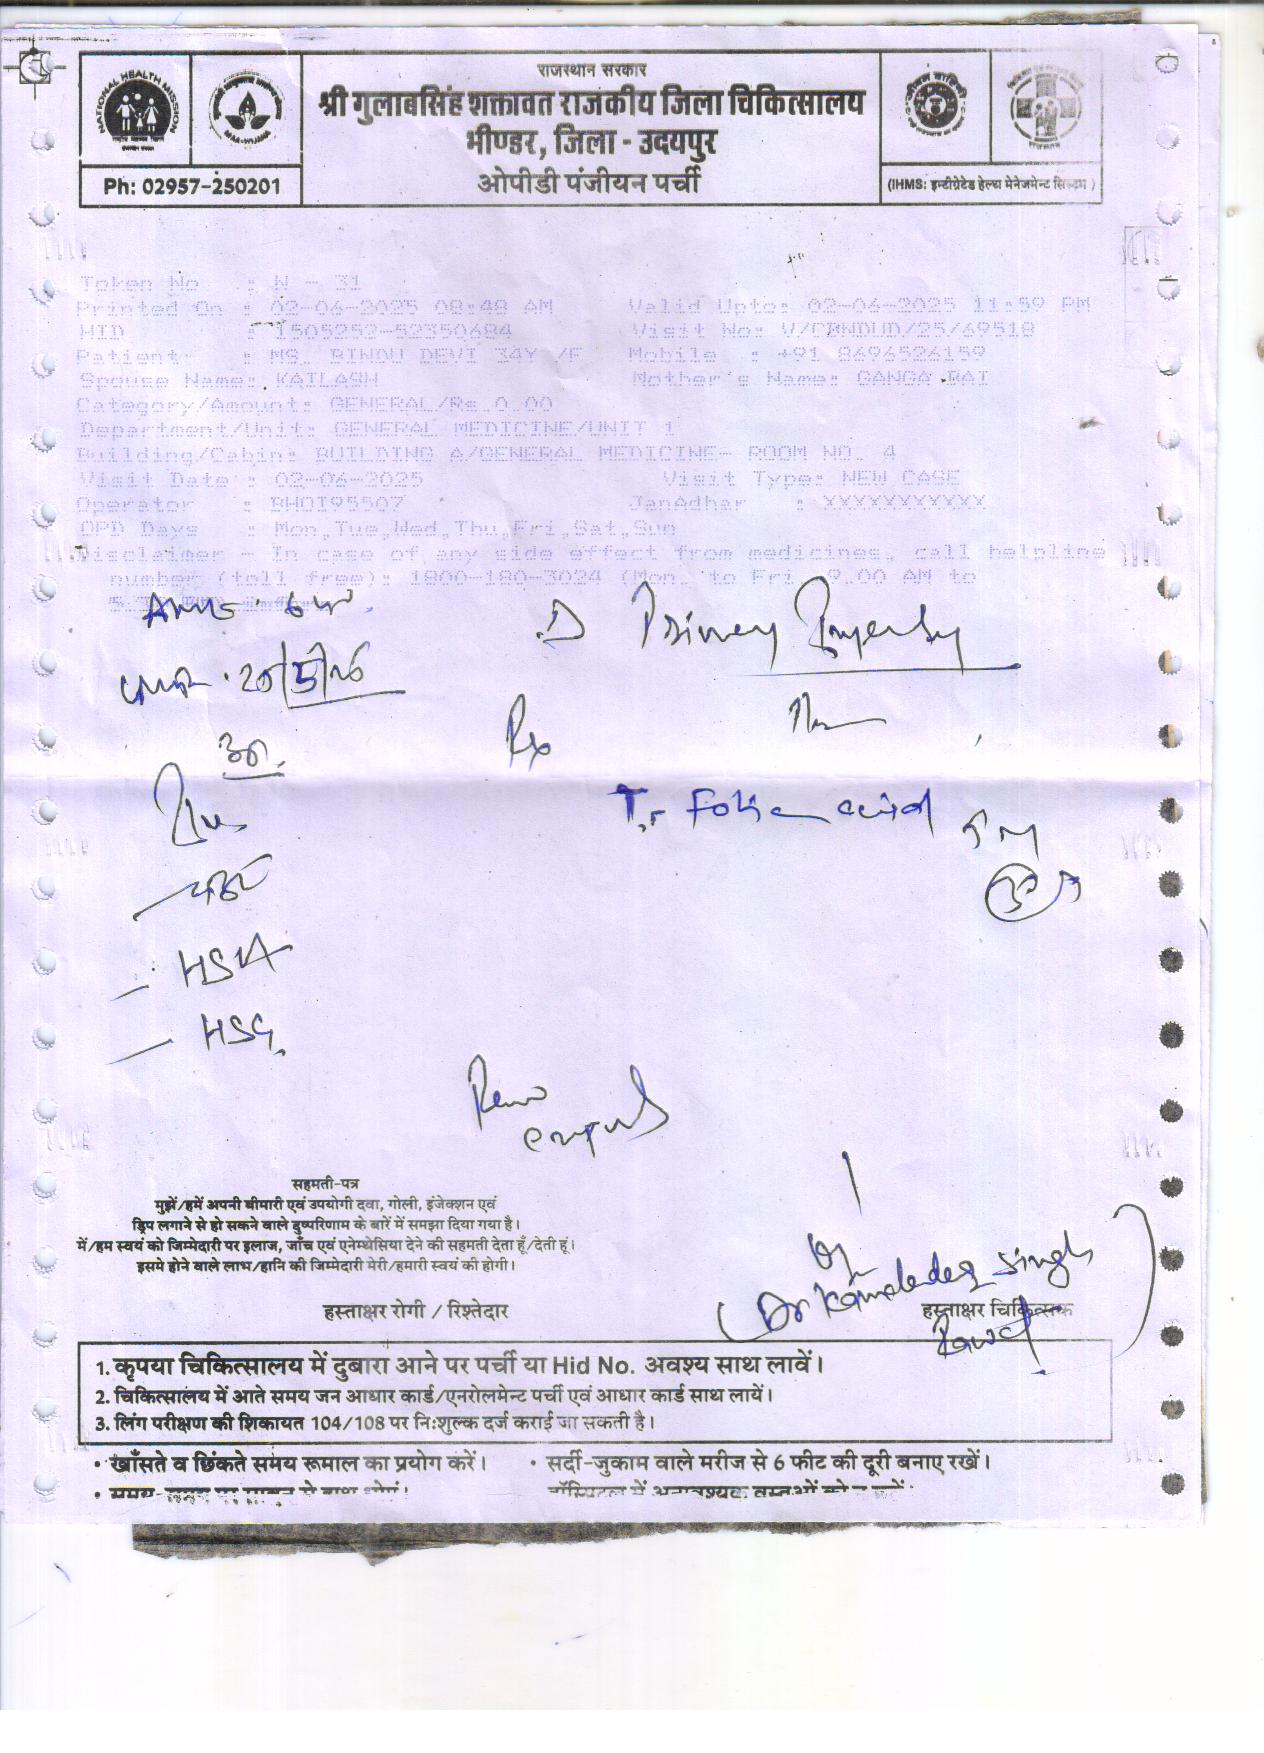 राजस्थान सरकार
श्री गुलाबसिंह शक्तावत राजकीय जिला चिकित्सालय
भीण्डर, जिला - उदयपुर
ओपीडी पंजीयन पर्ची
NATIONAL HEALTH MISSION
Ph: 02957-250201
(IHMS: इन्टीग्रेटेड हेल्थ मेनेजमेन्ट सिस्टम)
Token No : N - 31
Printed On : 02-06-2025 08:48 AM Valid Upto: 02-06-2025 11:59 PM
HID : 1505252-52350684 Visit No: V/CRNDUD/25/69518
Patient : MS. BINDU DEVI 34Y /F Mobile : +91 8696526159
Spouse Name: KAILASH Mother's Name: GANGA BAI
Category/Amount: GENERAL/Rs.0.00
Department/Unit: GENERAL MEDICINE/UNIT 1
Building/Cabin: BUILDING A/GENERAL MEDICINE- ROOM NO. 4
Visit Date : 02-06-2025 Visit Type: NEW CASE
Operator : BHOI95507 JanAdhar : XXXXXXXXXXX
OPD Days : Mon,Tue,Wed,Thu,Fri,Sat,Sun
Disclaimer - In case of any side effect from medicines, call helpline
number (toll free): 1800-180-3024 (Mon. to Fri. 9.00 AM to
.D Primary
20/5/26
Rx
T. Folic acid
HSA
HSG.
सहमती-पत्र
मुझें/हमें अपनी बीमारी एवं उपयोगी दवा, गोली, इंजेक्शन एवं
ड्रिप लगाने से हो सकने वाले दुष्परिणाम के बारें में समझा दिया गया है।
में/हम स्वयं को जिम्मेदारी पर इलाज, जाँच एवं एनेम्थेसिया देने की सहमती देता हूँ/देती हूं।
इसमे होने वाले लाभ/हानि की जिम्मेदारी मेरी/हमारी स्वयं की होगी।
(Dr Kamalendra Singh
हस्ताक्षर रोगी / रिश्तेदार हस्ताक्षर चिकित्सक
1. कृपया चिकित्सालय में दुबारा आने पर पर्ची या Hid No. अवश्य साथ लावें।
2. चिकित्सालय में आते समय जन आधार कार्ड/एनरोलमेन्ट पर्ची एवं आधार कार्ड साथ लायें।
3. लिंग परीक्षण की शिकायत 104/108 पर नि:शुल्क दर्ज कराई जा सकती है।
• खाँसते व छिंकते समय रूमाल का प्रयोग करें। • सर्दी-जुकाम वाले मरीज से 6 फीट की दूरी बनाए रखें।